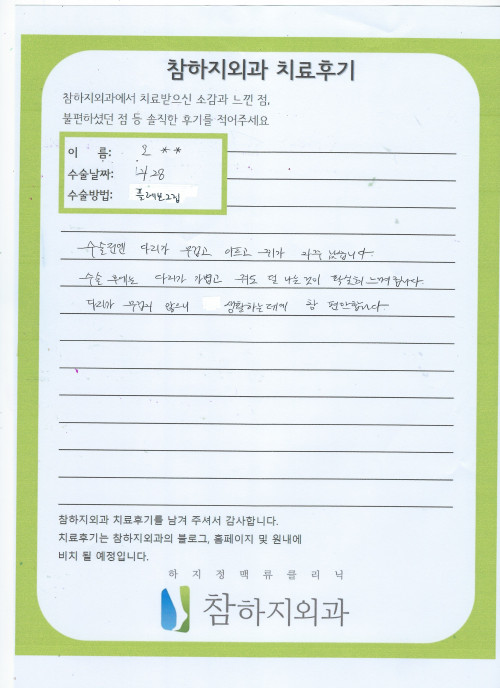 참하지외과 치료후기
참하지외과에서 치료받으신 소감과 느낀 점,
불편하셨던 점 등 솔직한 후기를 적어주세요
이 름: 오 **
수술날짜: 4/28
수술방법: 플레보그립
수술전엔 다리가 무겁고 아프고 쥐가 자주 났습니다.
수술 후에는 다리가 가볍고 쥐도 덜 나는것이 확실히 느껴집니다.
다리가 무겁지 않으니 생활하는데에 참 편안합니다.
참하지외과 치료후기를 남겨 주셔서 감사합니다.
치료후기는 참하지외과의 블로그, 홈페이지 및 원내에
비치 될 예정입니다.
하지정맥류클리닉
참하지외과